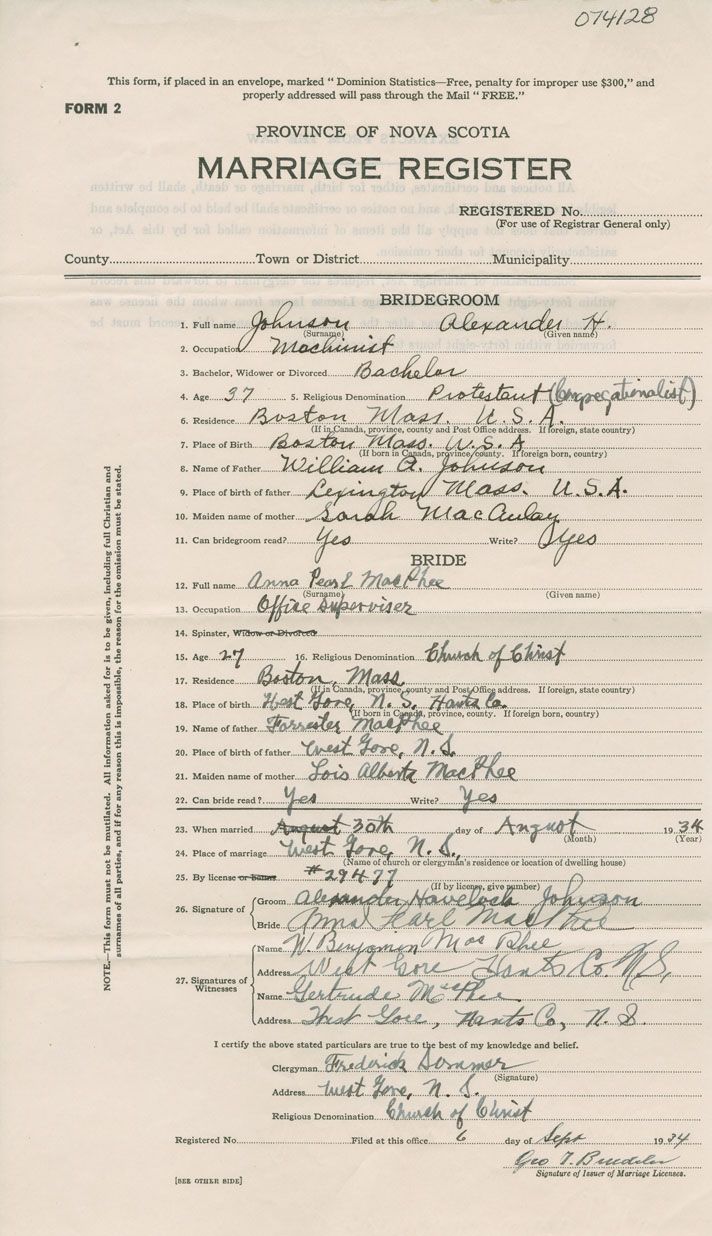 074128
This form, if placed in an envelope, marked "Dominion Statistics—Free, penalty for improper use $300," and
properly addressed will pass through the Mail "FREE."
FORM 2
PROVINCE OF NOVA SCOTIA
MARRIAGE REGISTER
REGISTERED No.
(For use of Registrar General only)
County Town or District Municipality
BRIDEGROOM
1. Full name Johnson Alexander H.
(Surname) (Given name)
2. Occupation Machinist
3. Bachelor, Widower or Divorced Bachelor
4. Age 37 5. Religious Denomination Protestant (Congregationalist)
6. Residence Boston Mass. U.S.A.
(If in Canada, province, county and Post Office address. If foreign, state country)
7. Place of Birth Boston Mass. U.S.A
(If born in Canada, province, county. If foreign born, country)
8. Name of Father William A. Johnson
9. Place of birth of father Lexington Mass. U.S.A.
10. Maiden name of mother Sarah MacAulay
11. Can bridegroom read? Yes Write? Yes
BRIDE
12. Full name Anna Pearl MacPhee
(Surname) (Given name)
13. Occupation Office Superviser
14. Spinster, Widow or Divorced
15. Age 27 16. Religious Denomination Church of Christ
17. Residence Boston, Mass.
(If in Canada, province, county and Post Office address. If foreign, state country)
18. Place of birth West Gore, N.S. Hants Co.
(If born in Canada, province, county. If foreign born, country)
19. Name of father Forrester MacPhee
20. Place of birth of father West Gore, N.S.
21. Maiden name of mother Lois Alberta MacPhee
22. Can bride read? Yes Write? Yes
23. When married August 30th day of August 1934
(Month) (Year)
24. Place of marriage West Gore, N.S.,
(Name of church or clergyman's residence or location of dwelling house)
25. By license or banns #29477
(If by license, give number)
26. Signature of
Groom Alexander Havelock Johnson
Bride Anna Pearl MacPhee
27. Signatures of Witnesses
Name W. Benjamin MacPhee
Address West Gore Hants Co. N.S.
Name Gertrude McPhee
Address West Gore, Hants Co, N.S.
I certify the above stated particulars are true to the best of my knowledge and belief.
Clergyman Frederick Sommer
(Signature)
Address West Gore, N.S.
Religious Denomination Church of Christ
Registered No. Filed at this office 6 day of Sept 1934
Geo T.
Signature of Issuer of Marriage Licenses.
[SEE OTHER SIDE]
NOTE.—This form must not be mutilated. All information asked for is to be given, including full Christian and
surnames of all parties, and if for any reason this is impossible, the reason for the omission must be stated.